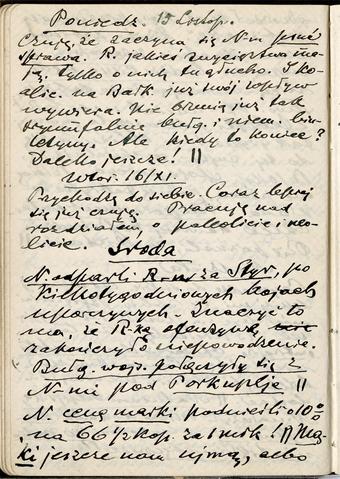 Poniedz. 15 Listop.
Czują, że zaczyna się N-m psuć
sprawa. R. jakieś zwycięstwa ma-
ją, tylko o nich tu głucho. I ko-
alic. na Bałk już swój wpływ
wywiera. Nie brzmią już tak
tryumfalnie bułg. i niem. biu-
letyny. Ale kiedy to koniec?
Daleko jeszcze! ||
Wtor. 16/XI.
Przychodzę do siebie. Coraz lepiej
się już czuję. Pracuję nad
rozdziałem o paleolicie i neo-
licie. Środa
N. odparli R-nów za Styr, po
kilkotygodniowych bojach
uporczywych. Znaczyć to
ma, że R-ką ofenzywę
zakończyło niepowodzenie.
Bułg. wojs. połączyły się z
N-mi pod Porkuplje ||
N. cenę marki podnieśli o 10%
na 66½ kop. za 1 mrk! || Mą-
ki jeszcze nam ujmą, albo